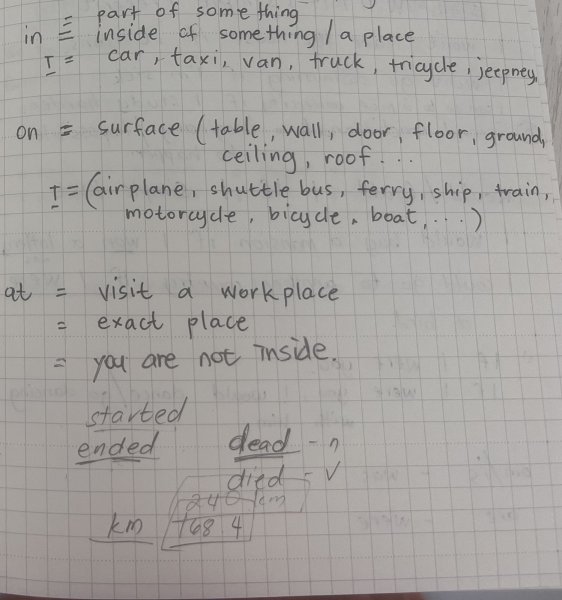 = part of something
in = inside of something / a place
I = car, taxi, van, truck, tricycle, jeepney,
on = surface (table, wall, door, floor, ground,
ceiling, roof ...
I = (airplane, shuttle bus, ferry, ship, train,
motorcycle, bicycle, boat, ...)
at = visit a workplace
= exact place
= you are not inside.
started
ended dead - n
died - v
240 km
km 768.4